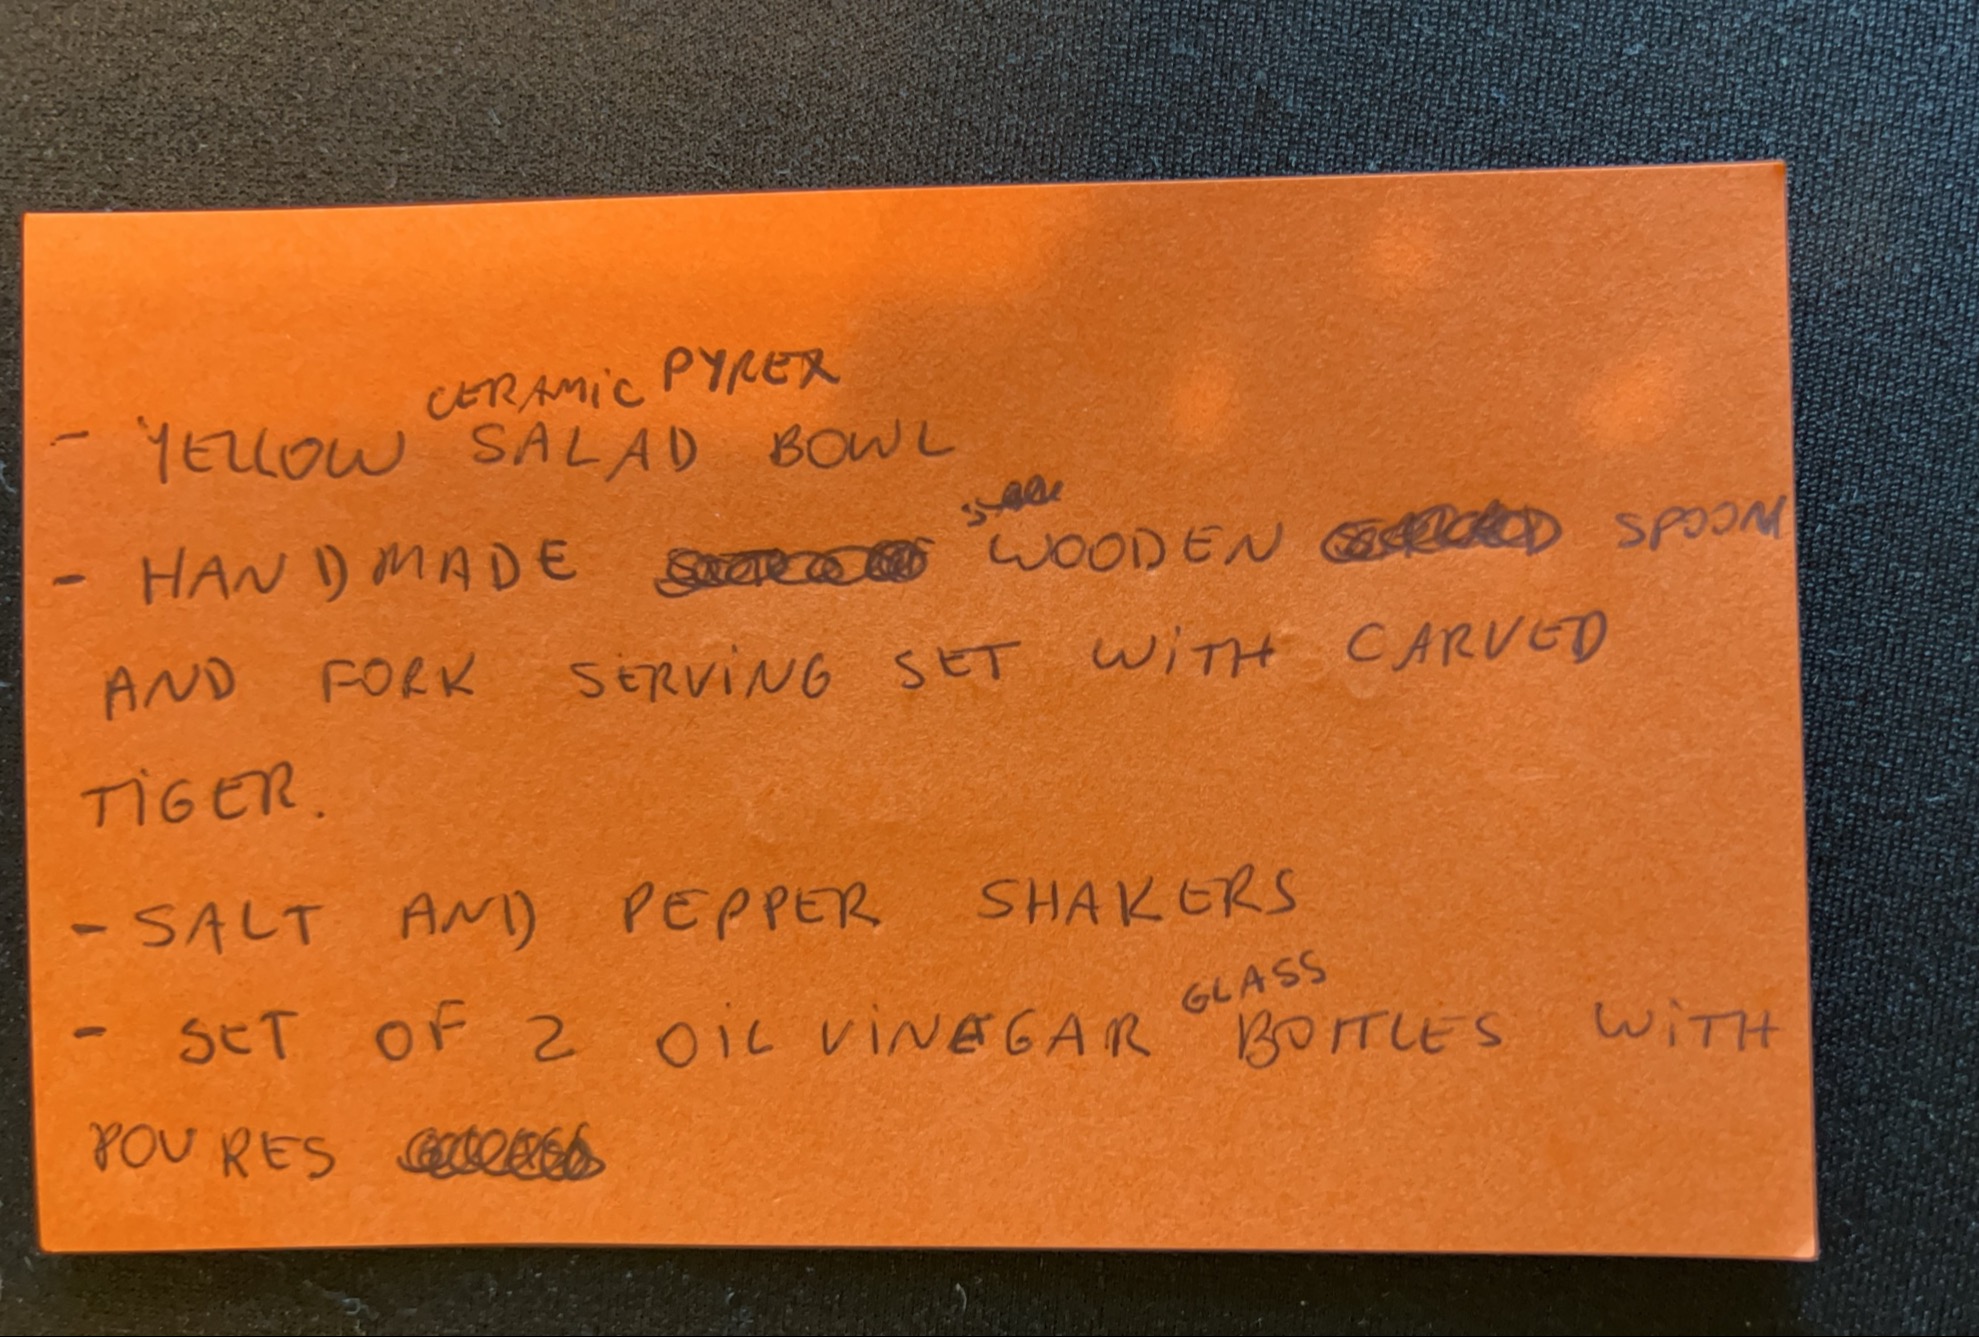 CERAMIC PYREX
- YELLOW SALAD BOWL
- HANDMADE WOODEN SPOON
AND FORK SERVING SET WITH CARVED
TIGER.
- SALT AND PEPPER SHAKERS
GLASS
- SET OF 2 OIL VINEGAR BOTTLES WITH
POURES